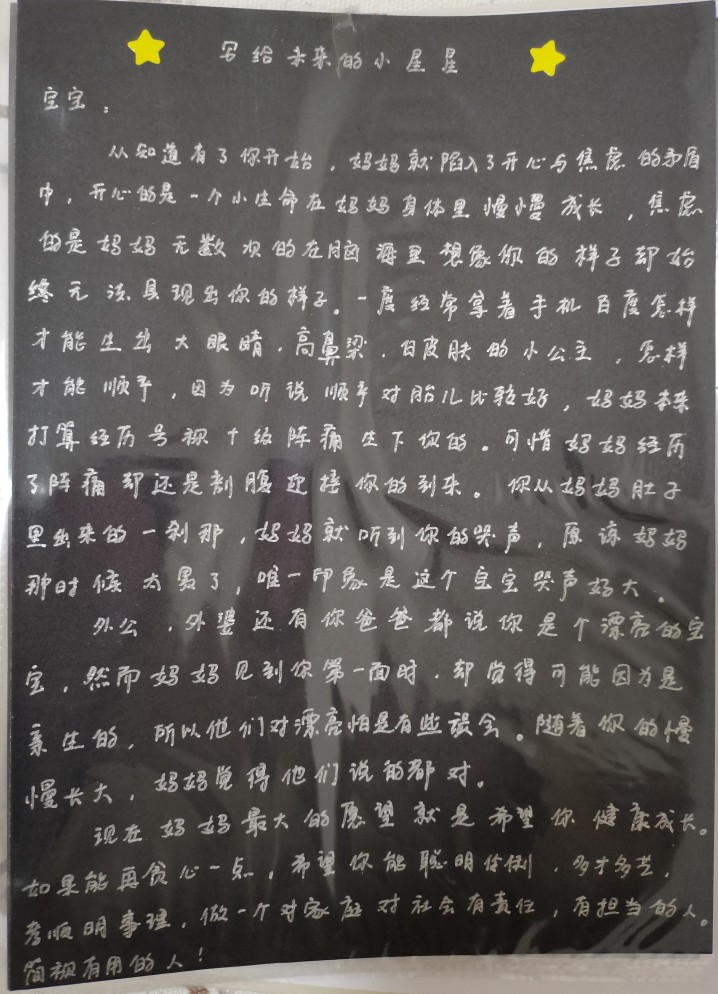 写给未来的小星星
宝宝：
从知道有了你开始，妈妈就陷入了开心与焦虑的矛盾
中，开心的是一个小生命在妈妈身体里慢慢成长，焦虑
的是妈妈无数次的在脑海里想象你的样子却始
终无法具现出你的样子。一度经常拿着手机百度怎样
才能生出大眼睛，高鼻梁，白皮肤的小公主，怎样
才能顺产，因为听说顺产对胎儿比较好，妈妈本来
打算经历号称十级阵痛生下你的。可惜妈妈经历
了阵痛却还是剖腹迎接你的到来。你从妈妈肚子
里出来的一刹那，妈妈就听到你的哭声，原谅妈妈
那时候太累了，唯一印象是这个宝宝哭声好大。
外公，外婆还有你爸爸都说你是个漂亮的宝
宝，然而妈妈见到你第一面时，却觉得可能因为是
亲生的，所以他们对漂亮怕是有些误会。随着你的慢
慢长大，妈妈觉得他们说的都对。
现在妈妈最大的愿望就是希望你健康成长。
如果能再贪心一点，希望你能聪明伶俐，多才多艺，
孝顺明事理，做一个对家庭对社会有责任，有担当的人。
简称有用的人！